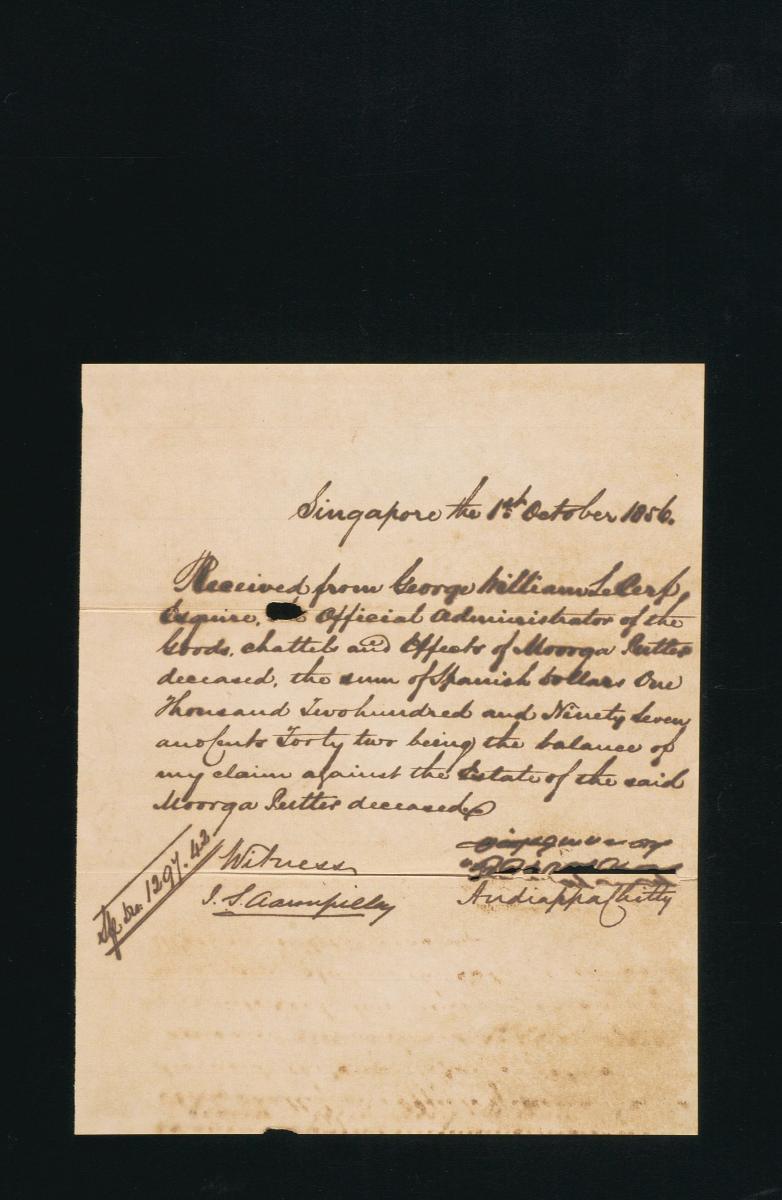 Singapore the 1st October 1856.
Received from George William LeCerf,
Esquire, Official Administrator of the
Goods, chattels and Effects of Moorga Putter
deceased, the sum of Spanish Dollars One
Thousand Two hundred and Ninety Seven
and Cents Forty two being the balance of
my claim against the Estate of the said
Moorga Putter deceased
Witness
J. S. Aarmpilly
Andiappa Chitty
1297.42